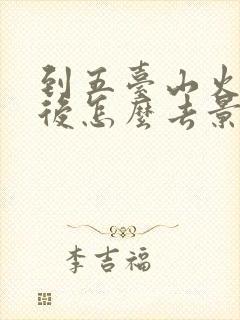 到五臺山火
後怎麼去景
李吉福